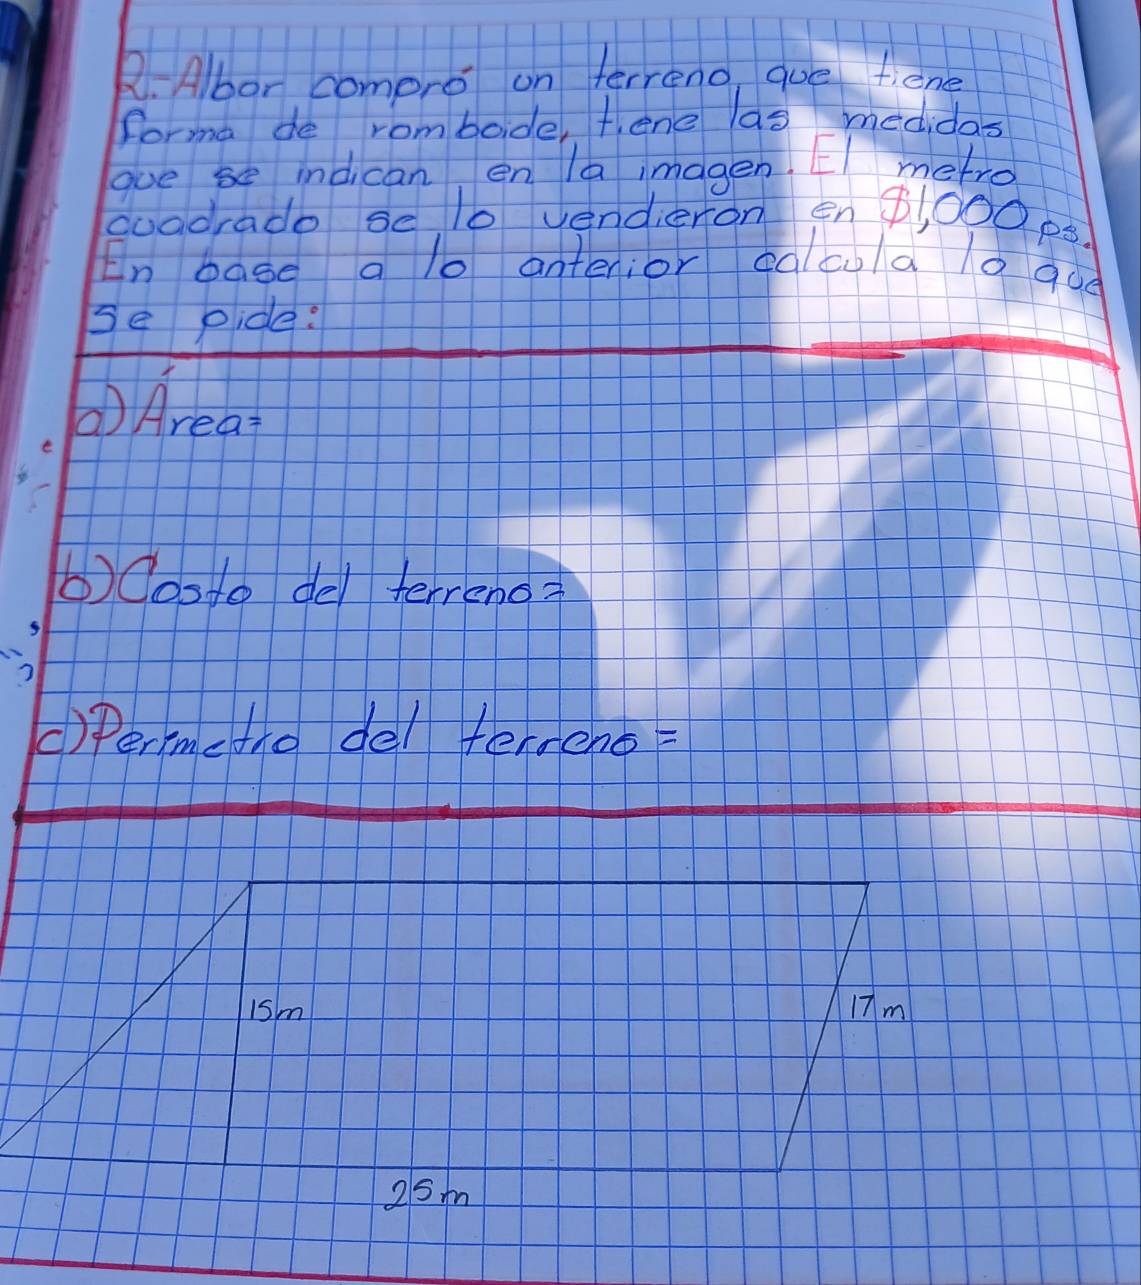 2.-Albor compró un terreno que tiene
forma de romboide, tiene las medidas
que se indican en la imagen. El metro
cuadrado se lo vendieron en $1,000 ps.
En base a lo anterior calcula lo que
se pide:
a) Área=
b) Costo del terreno=
c) Perímetro del terreno=
15m
17m
25m